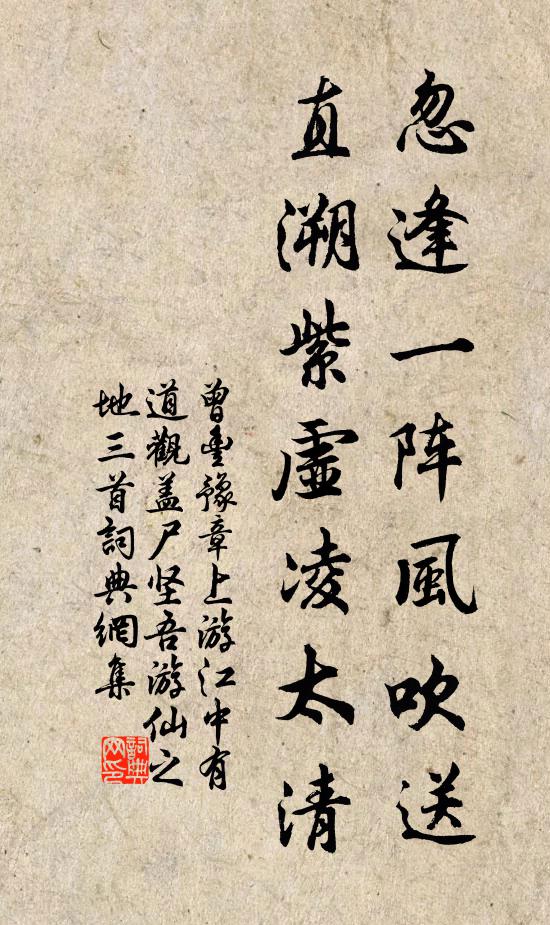 忽逢一阵風吹送
直溯紫虛凌太清
曾豊豫章上游江中有
道觀盖尸坚吾游仙之
地三首詞典網集
詞典网印